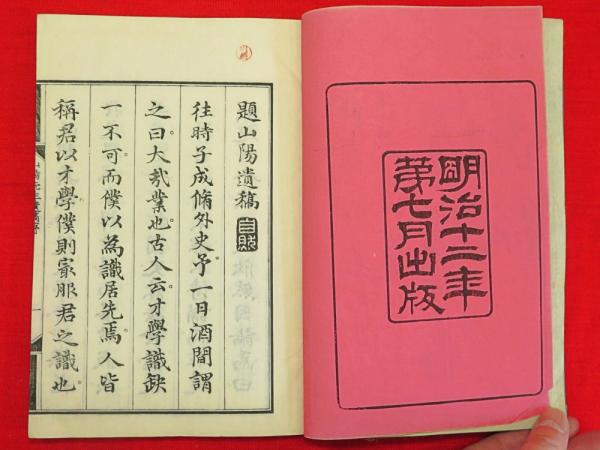 明治十二年
第七月出版
題山陽遺稿
往時子成脩外史予一日酒間謂
之曰大哉業也古人云才學識缺
一不可而僕以為識居先焉人皆
稱君以才學僕則最服君之識也